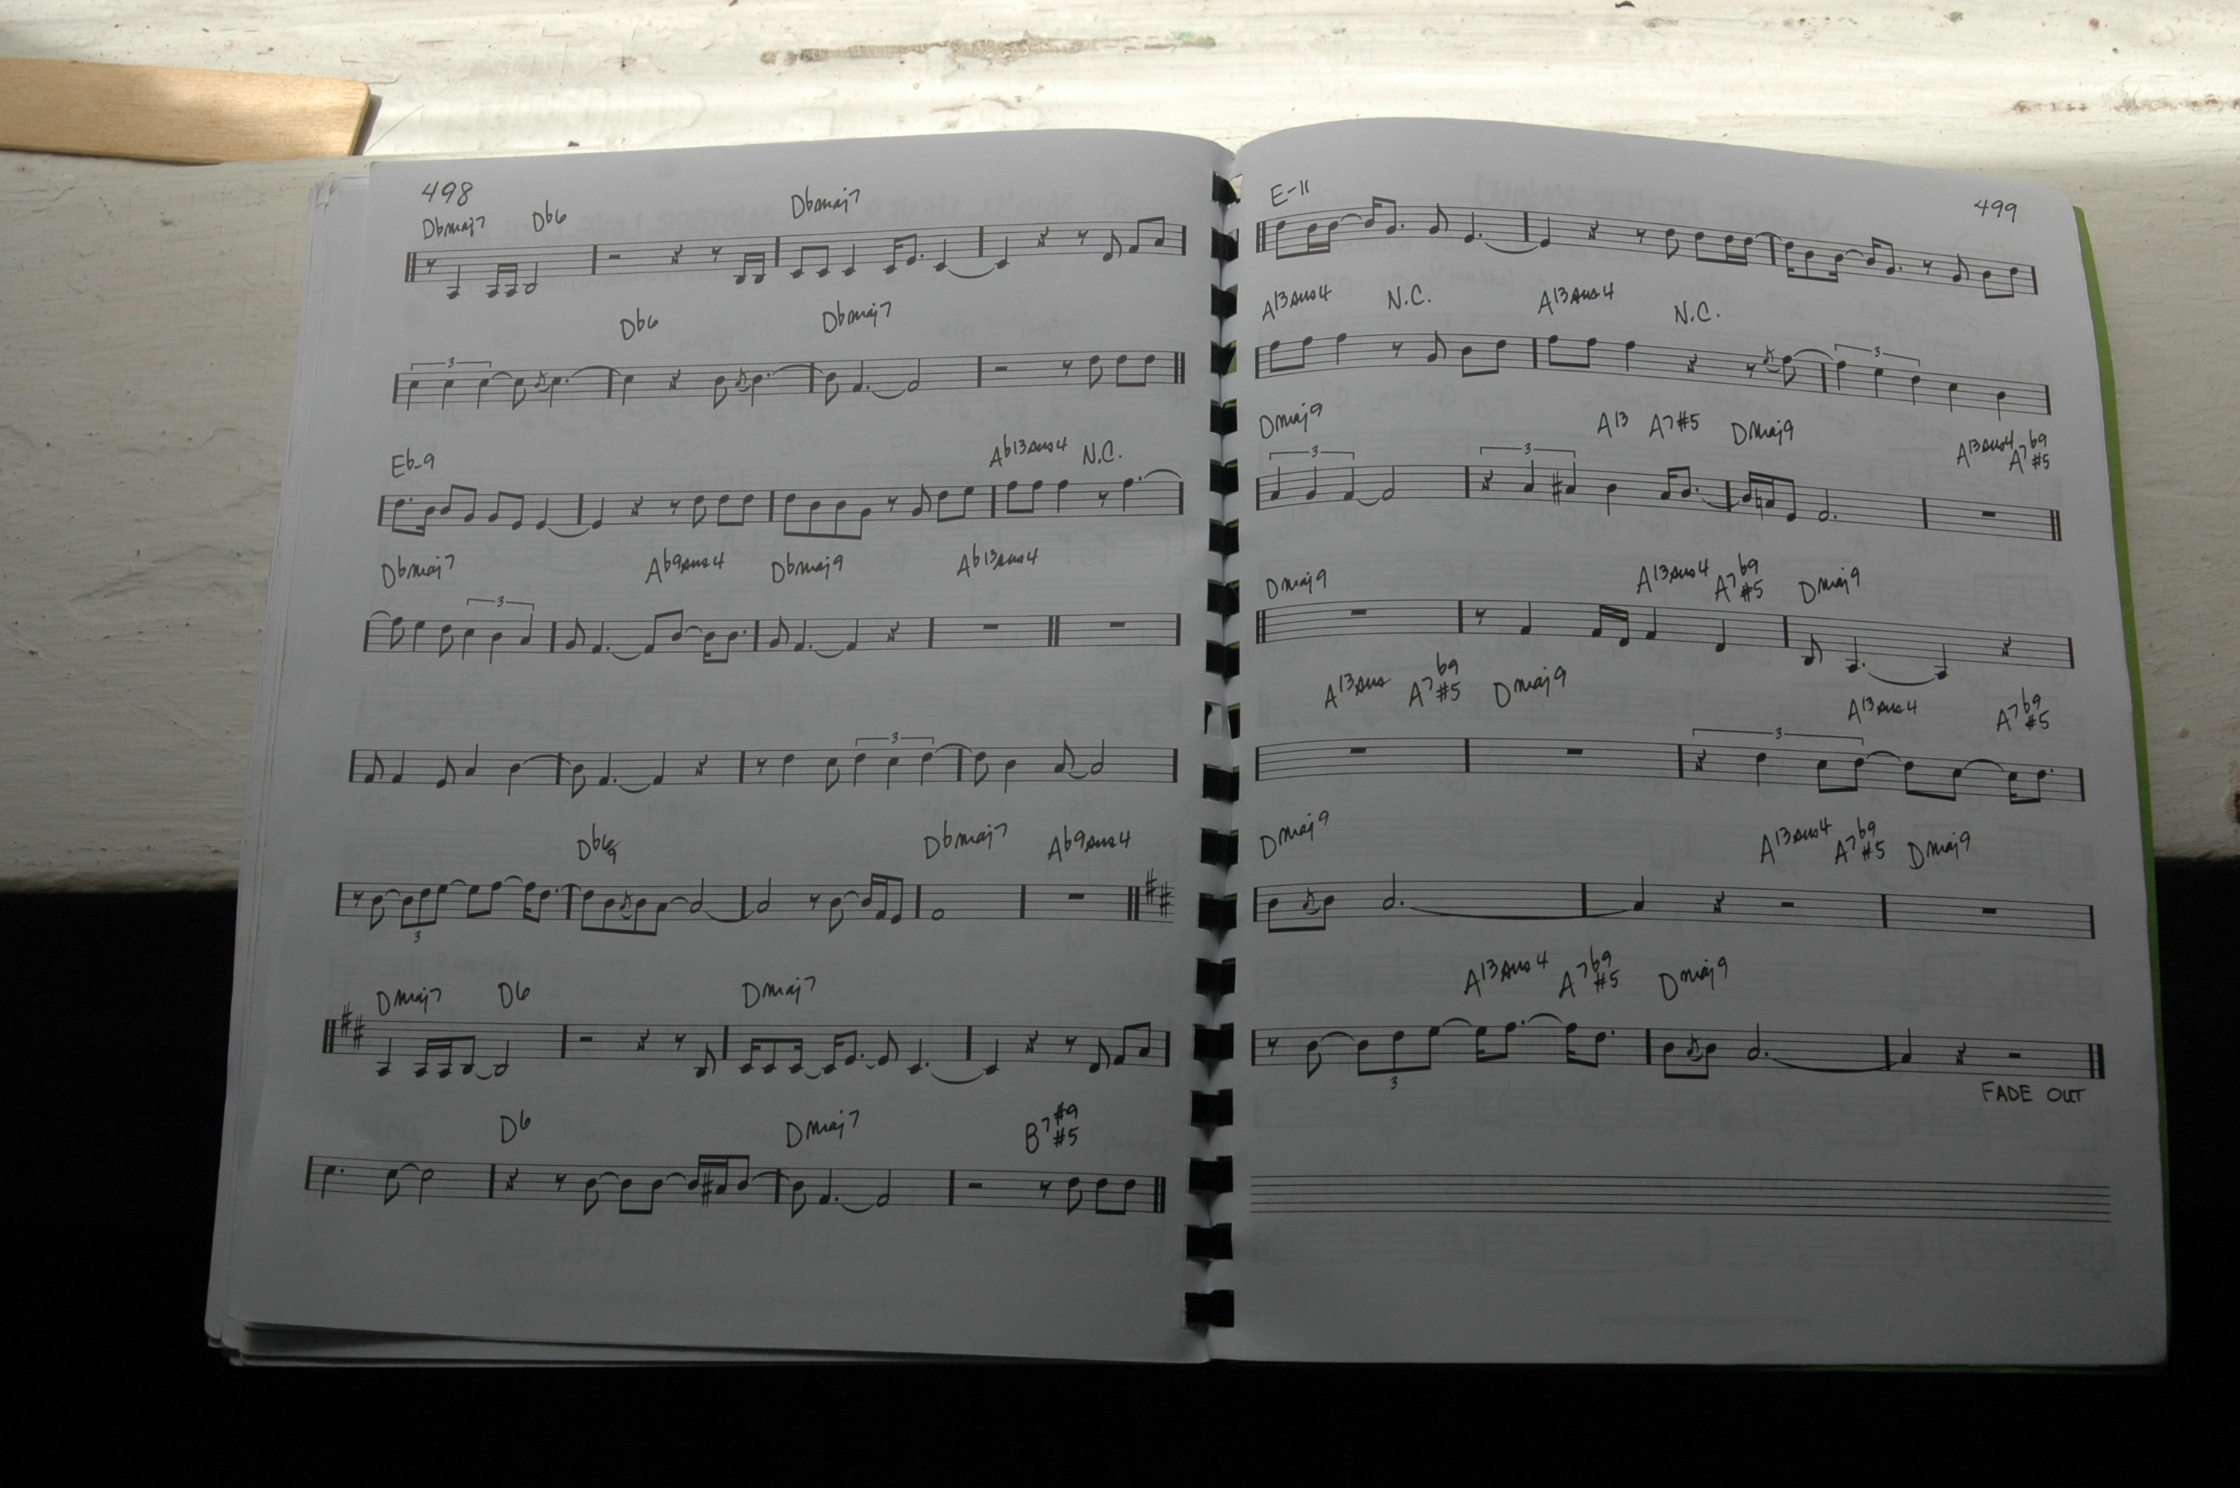 498
Dbmaj7 Db6 Dbmaj7
Db6 Dbmaj7
3
Eb-9 Ab13sus4 N.C.
Dbmaj7 Ab9sus4 Dbmaj9 Ab13sus4
3
3
Db6/9 Dbmaj7 Ab9sus4
3
Dmaj7 D6 Dmaj7
D6 Dmaj7 B7#9#5
499
E-11
A13sus4 N.C. A13sus4 N.C.
3
Dmaj9 A13 A7#5 Dmaj9 A13sus4 A7b9#5
3 3
Dmaj9 A13sus4 A7b9#5 Dmaj9
A13sus A7b9#5 Dmaj9 A13sus4 A7b9#5
3
Dmaj9 A13sus4 A7b9#5 Dmaj9
A13sus4 A7b9#5 Dmaj9
3
FADE OUT